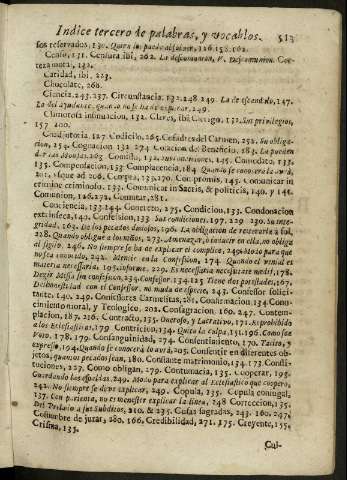 Indice tercero de palabras, y vocablos. 513
sos reservados, 130. Quien los puede absolver, 126. 158. 162.
Censo, 131. Censura ibi, 262. La descomunion, V. Descomunion. Cer-
teza moral, 132.
Caridad, ibi, 223.
Chocolate, 268.
Ciencia, 243. 237. Circunstancia, 132. 248. 249. La de escandalo, 147.
La del ayudante, quando no se ha de explicar, 249.
Clamorosa insinuacion, 132. Clerigo, 131. Sus privilegios,
157. 160.
Coadjutoria 127. Codicilo, 265. Cofadres del Carmen, 252. Su obliga-
cion, 154. Cognacion 132 274 Colacion de Beneficio, 183. La pueden
Comodato, 133.
135. Compensacion, 153 Complacencia, 184 Quando se conocerà avrà,
201. Que ad 206. Compra, 133, 270. Compromiso, 145. Comunicar in
crimine criminoso. 133. Comunicat in Sacris, & politicis, 140. y 141.
Comunion, 126. 272, Conmutar, 281.
Conciencia, 133. 144. Concreto, 275. Condicion, 133. Condonacion
extrinseca, 140. Confesion, 133 Sus condiciones, 197. 229 230. Su inte-
gridad, 163. De los pecados dudosos, 196. La obligacion de reiterarla
228. Quando obligue a los niños, 273. Amenazar, o in ella, no obliga
al sigilo, 246. No siempre se ha de explicar el complice, 249
sea conocido, 242. Mentir en la Confession, 174. Quando el venial es
materia necessaria, 195. informe. 229. Es necessaria 178.
Dezir Missa sin confession, 234. Confessor 134. 135 Tiene dos potestades, 167.
Deshonestidad con el Confessor, no muda de especie, 243. Confessor solici-
tante, 140. 249. Confessores Carmelitas, 281, Confirmacion, 134 Cono-
cimiento moral, y Teologico, 201. Consagracion, 160. 247. Contem-
placion, 187, 236. Contracto, 135. Oneroso, y Lucrativo, 171. Es prohibida
a los Eclesiasticos, 179 Contricion, 134. Quita la culpa, 151. 196. Como sea
Voto, 178. 179. Consanguinidad, 274. Consentimiento, 170. Tacito, y
expresso, 194. Quando se conocerà lo avrà, 205. Consentir en diferentes ob-
jetos, quantos pecados sean, 180. Constante matrimonio, 134. 173. Consti-
tuciones, 127. Como obligan, 179. Contumacia, 135. Cooperar, 195.
Guardando las espaldas, 249. Modo para explicar al Eclesiastico que coopero,
242. No siempre se deve explicar, 249. Copula, 135. Copula conjugal,
137. Con parienta, no es menester explicar la linea, 248 Correccion, 135.
Del Prelado a sus Subditos, 210. & 235. Cosas sagradas, 243. 160. 247.
Costumbre de jurar, 280, 166. Credibilidad, 271. 275. Creyente, 155.
Crisma, 135.
Cul-